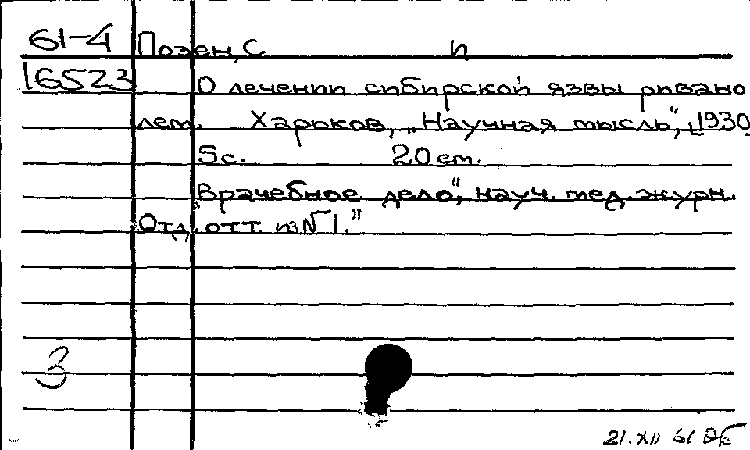 61-4 Позен, С. п
16523 О лечении сибирской язвы ривано
лем. Харьков, „Научная мысль", [1930
5с. 20 см.
Врачебное дело", науч. мед. журн.
Отд. отт. из №1."
3
21.XII 61